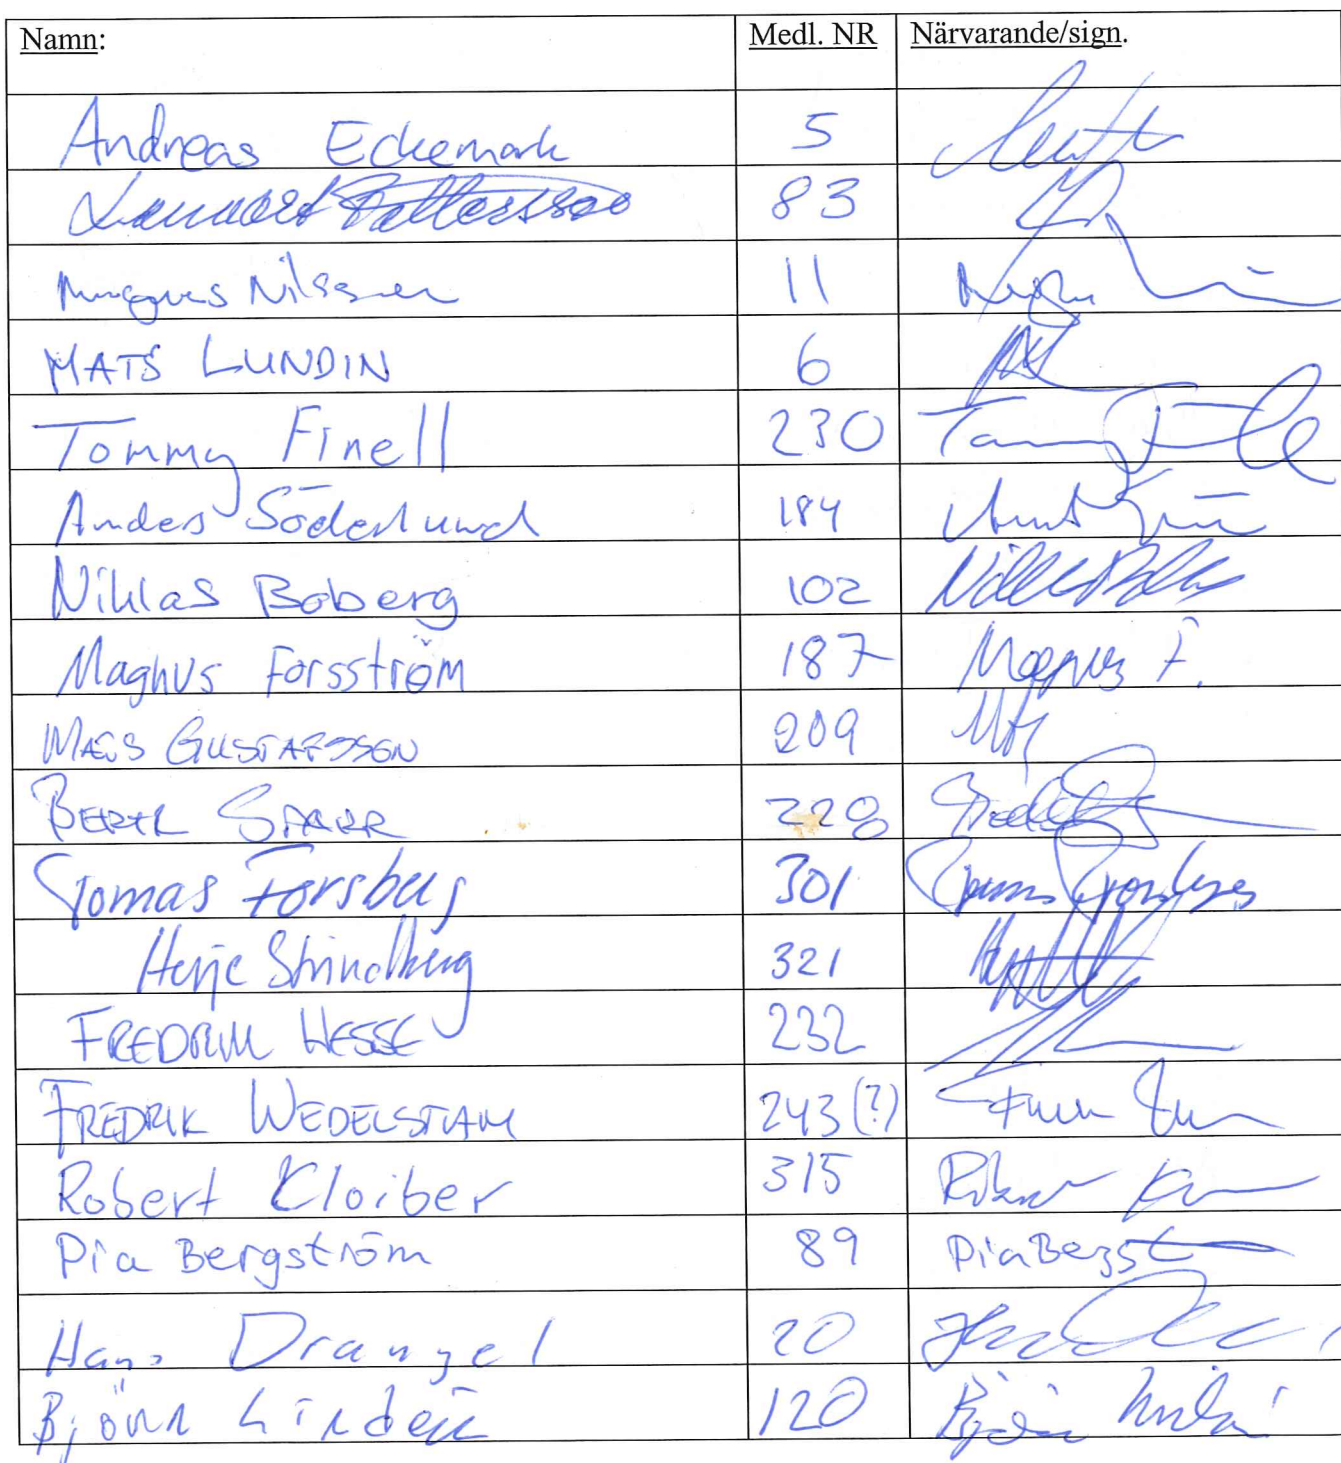 Namn: Medl. NR Närvarande/sign.
Andreas Eckemark 5
Lennart Pettersson 83
Magnus Nilsson 11
MATS LUNDIN 6
Tommy Finell 230
Anders Söderlund 184
Niklas Boberg 102
Magnus Forsström 187 Magnus F.
MATS GUSTAFSSON 209
BERTIL 228
Tomas Forsberg 301
Herje Strindberg 321
FREDRIK HESSE 232
FREDRIK WEDELSTAM 243(?)
Robert Kloiber 315
Pia Bergström 89 Pia Bergst
Hans Drangel 20
Björn Lindén 120